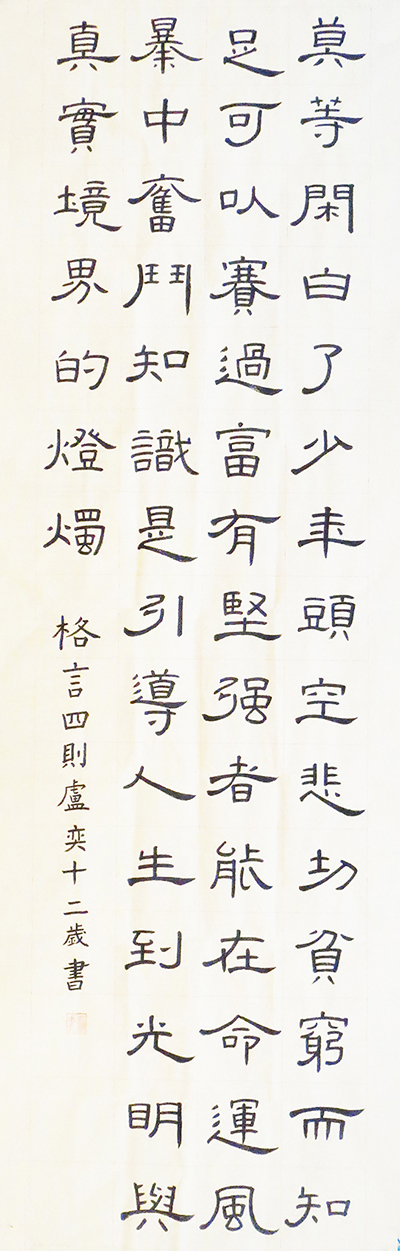 莫等閑白了少年頭空悲切貧窮而知
足可以賽過富有堅强者能在命運風
暴中奮鬥知識是引導人生到光明與
真實境界的燈燭
格言四則盧奕十二歲書